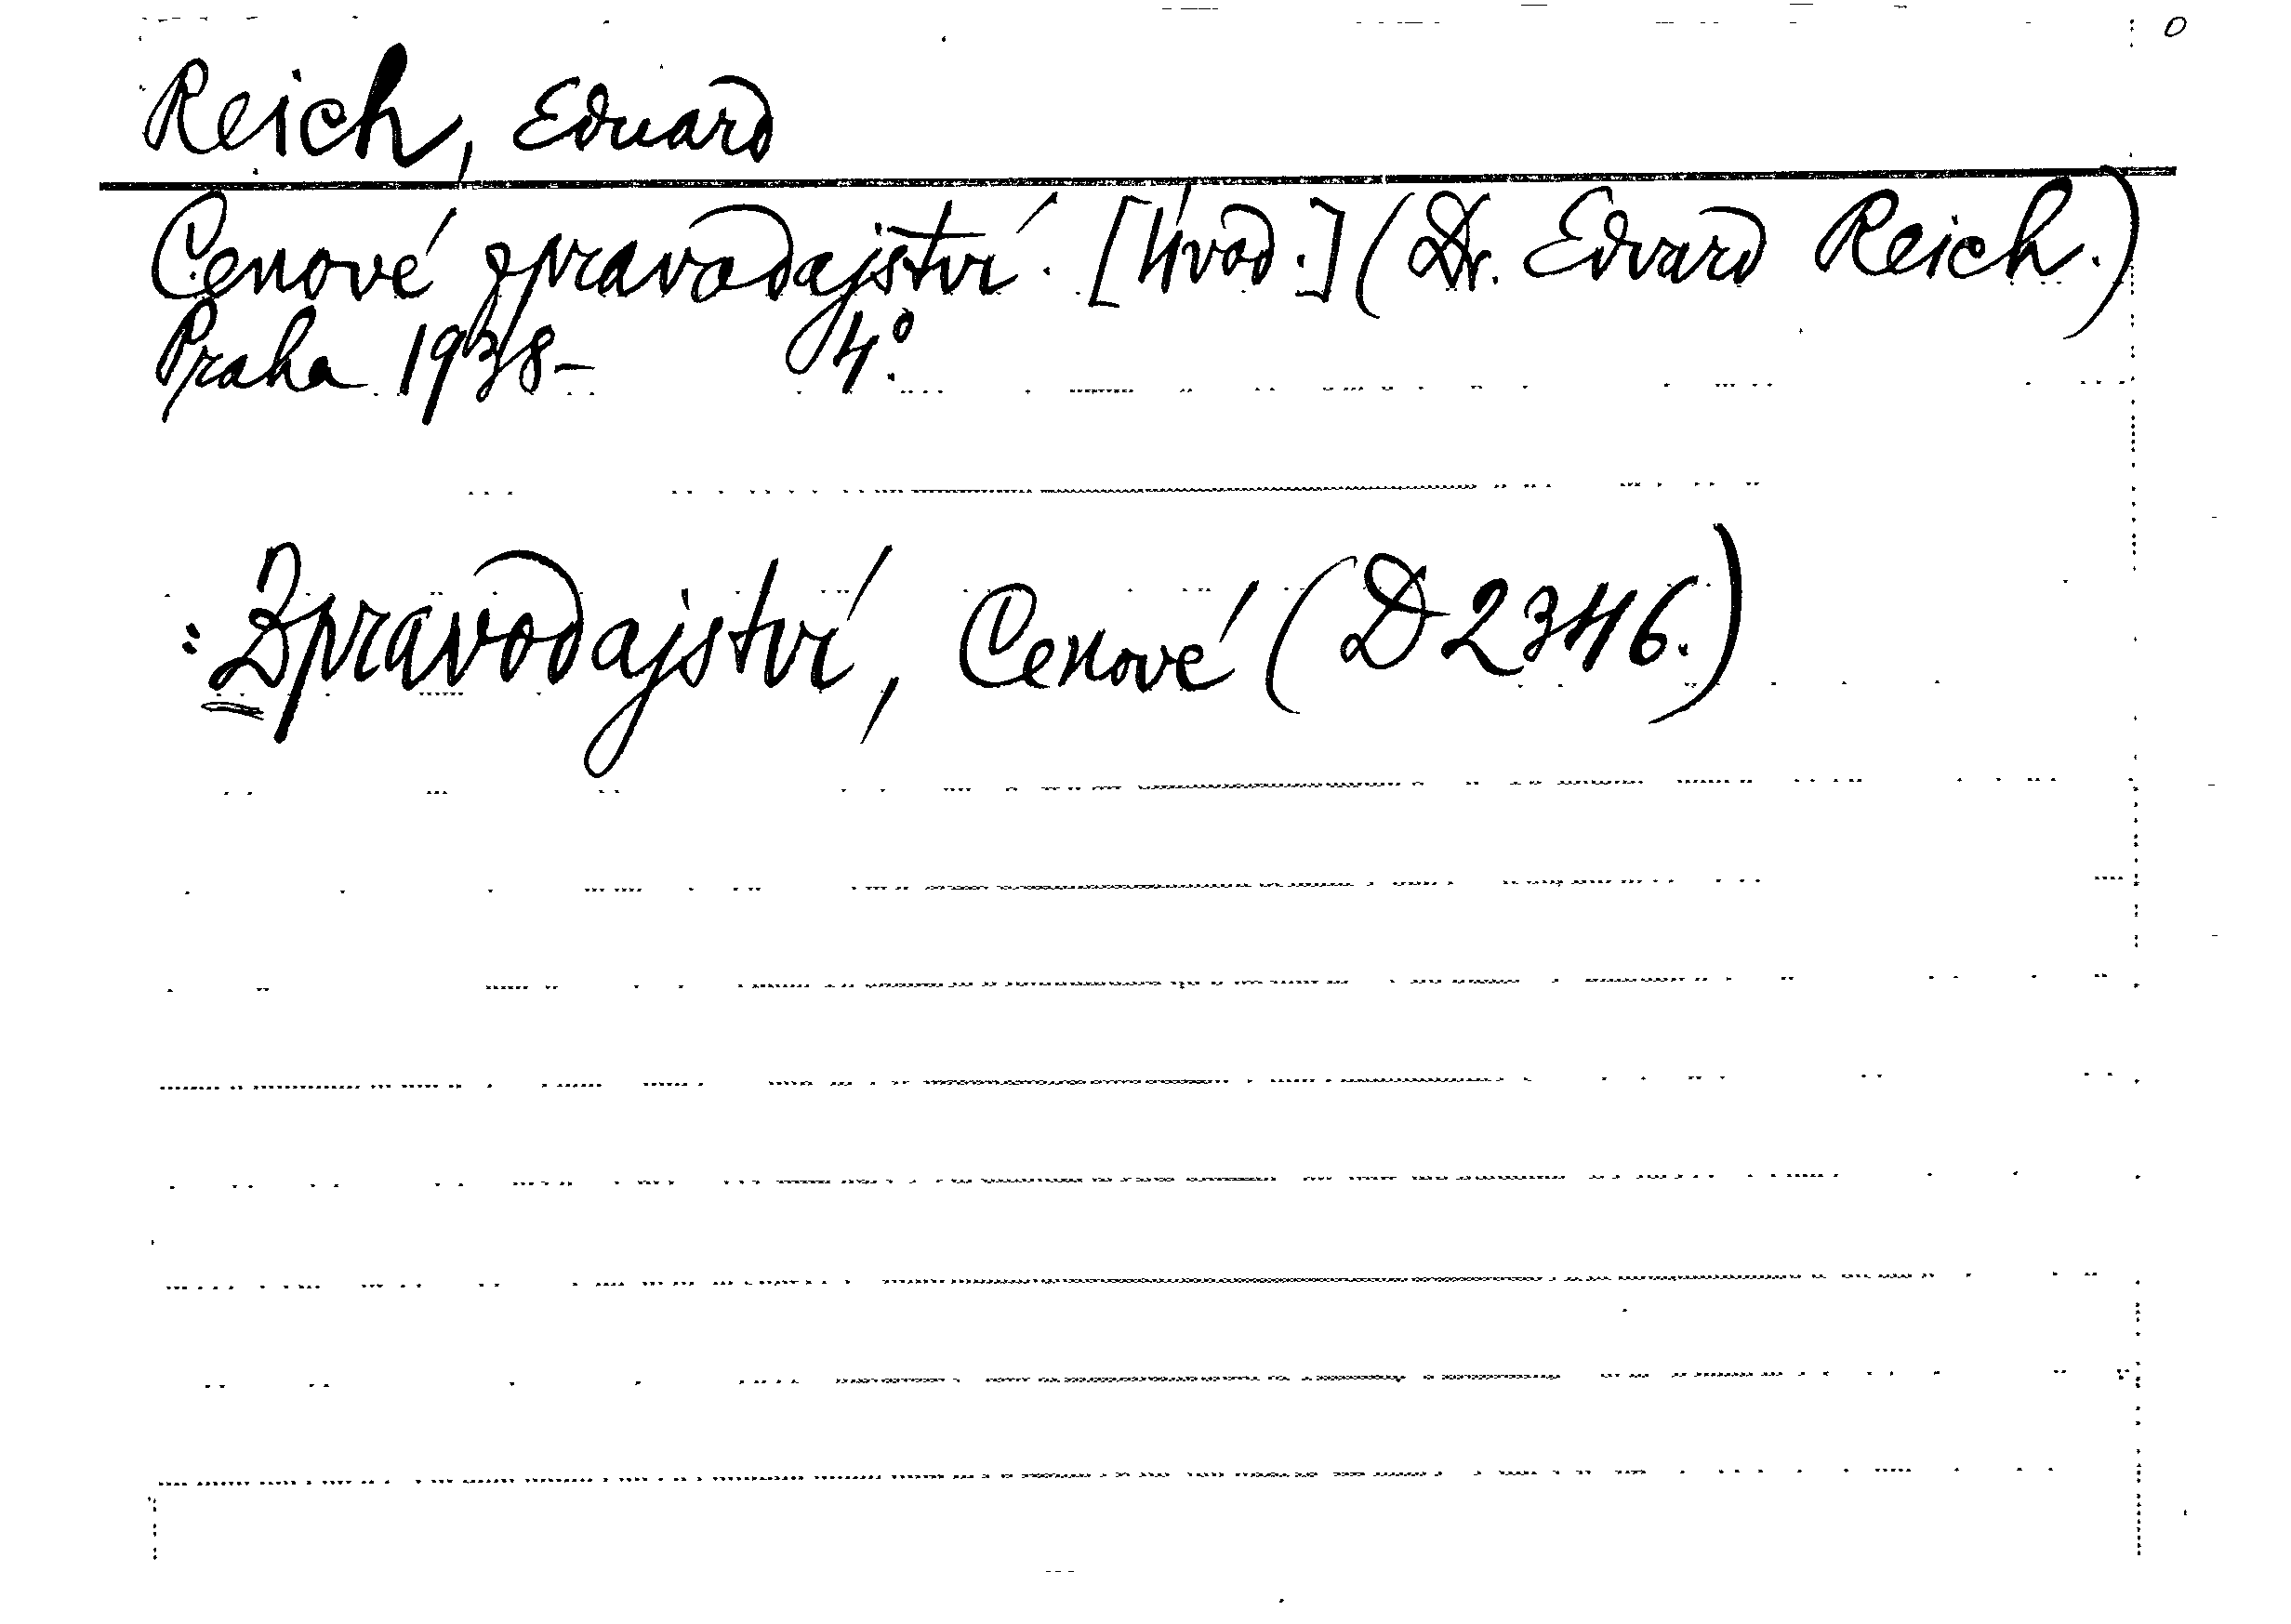 Reich, Eduard
Cenové zpravodajství. [Úvod.] (Dr. Edvard Reich.)
Praha 1938- 4°.
: Zpravodajství, Cenové (D 2346.)